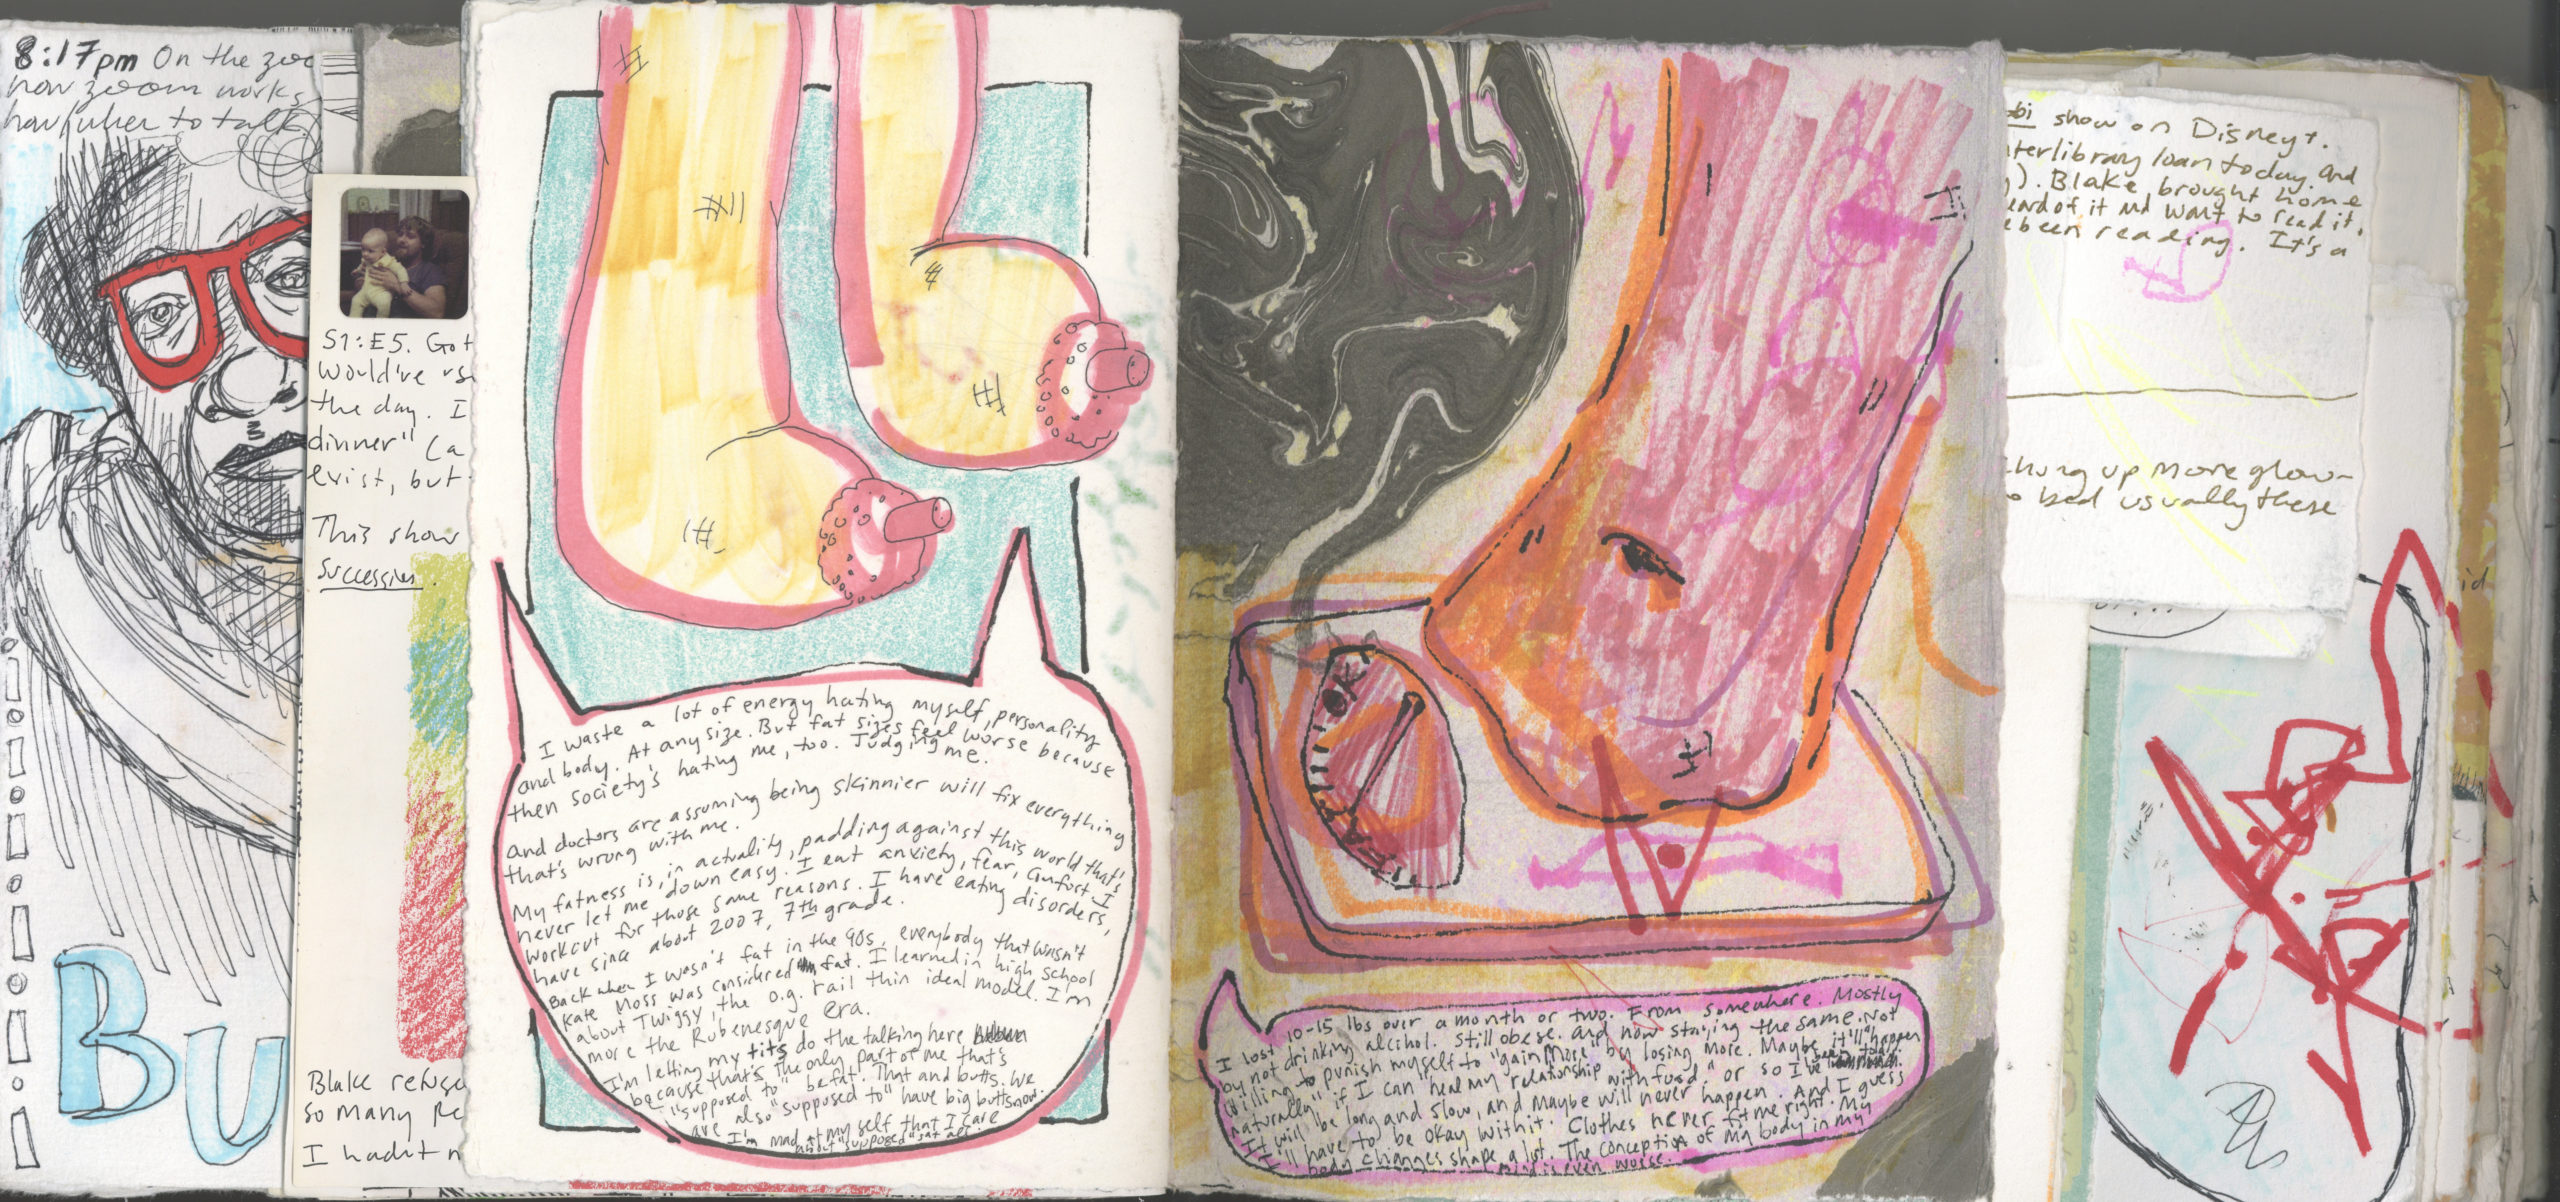 8:17pm On the zoo
how zoom works,
how/when to talk.
S1:E5. Got
Would've
the day. I
dinner" (a
exist, but
This show
Succession.
Blake refuse
so many
I hadn't
BU
I waste a lot of energy hating myself, personality
and body. At any size. But fat sizes feel worse because
then society's hating me, too. Judging me.
And doctors are assuming being skinnier will fix everything
that's wrong with me.
My fatness is, in actuality, padding against this world that's
never let me down easy. I eat anxiety, fear, comfort. I
workout for those same reasons. I have eating disorders,
have since about 2007, 7th grade.
Back when I wasn't fat in the 90s, everybody that wasn't
Kate Moss was considered fat. I learned in high school
about Twiggy, the o.g. rail thin ideal model. I'm
more the Rubenesque era.
I'm letting my tits do the talking here
because that's the only part of me that's
"supposed to" be fat. That and butts. We
are also "supposed to" have big butts now.
I'm mad at my self that I care
about "supposed" at all.
FAT
I lost 10-15 lbs over a month or two. From somewhere. Mostly
by not drinking alcohol. Still obese. And now staying the same. Not
willing to punish myself to "gain more" by losing more. Maybe it'll "happen
naturally" if I can "heal my relationship with food" or so I've
It will be long and slow, and maybe will never happen. And I guess
I'll have to be okay with it. Clothes never fit me right. My
body changes shape a lot. The conception of my body in my
mind is even worse.
show on Disney+.
interlibrary loan today. And
). Blake brought home
heard of it and want to read it.
been reading. It's a
hung up more glow-
to bed usually these
id